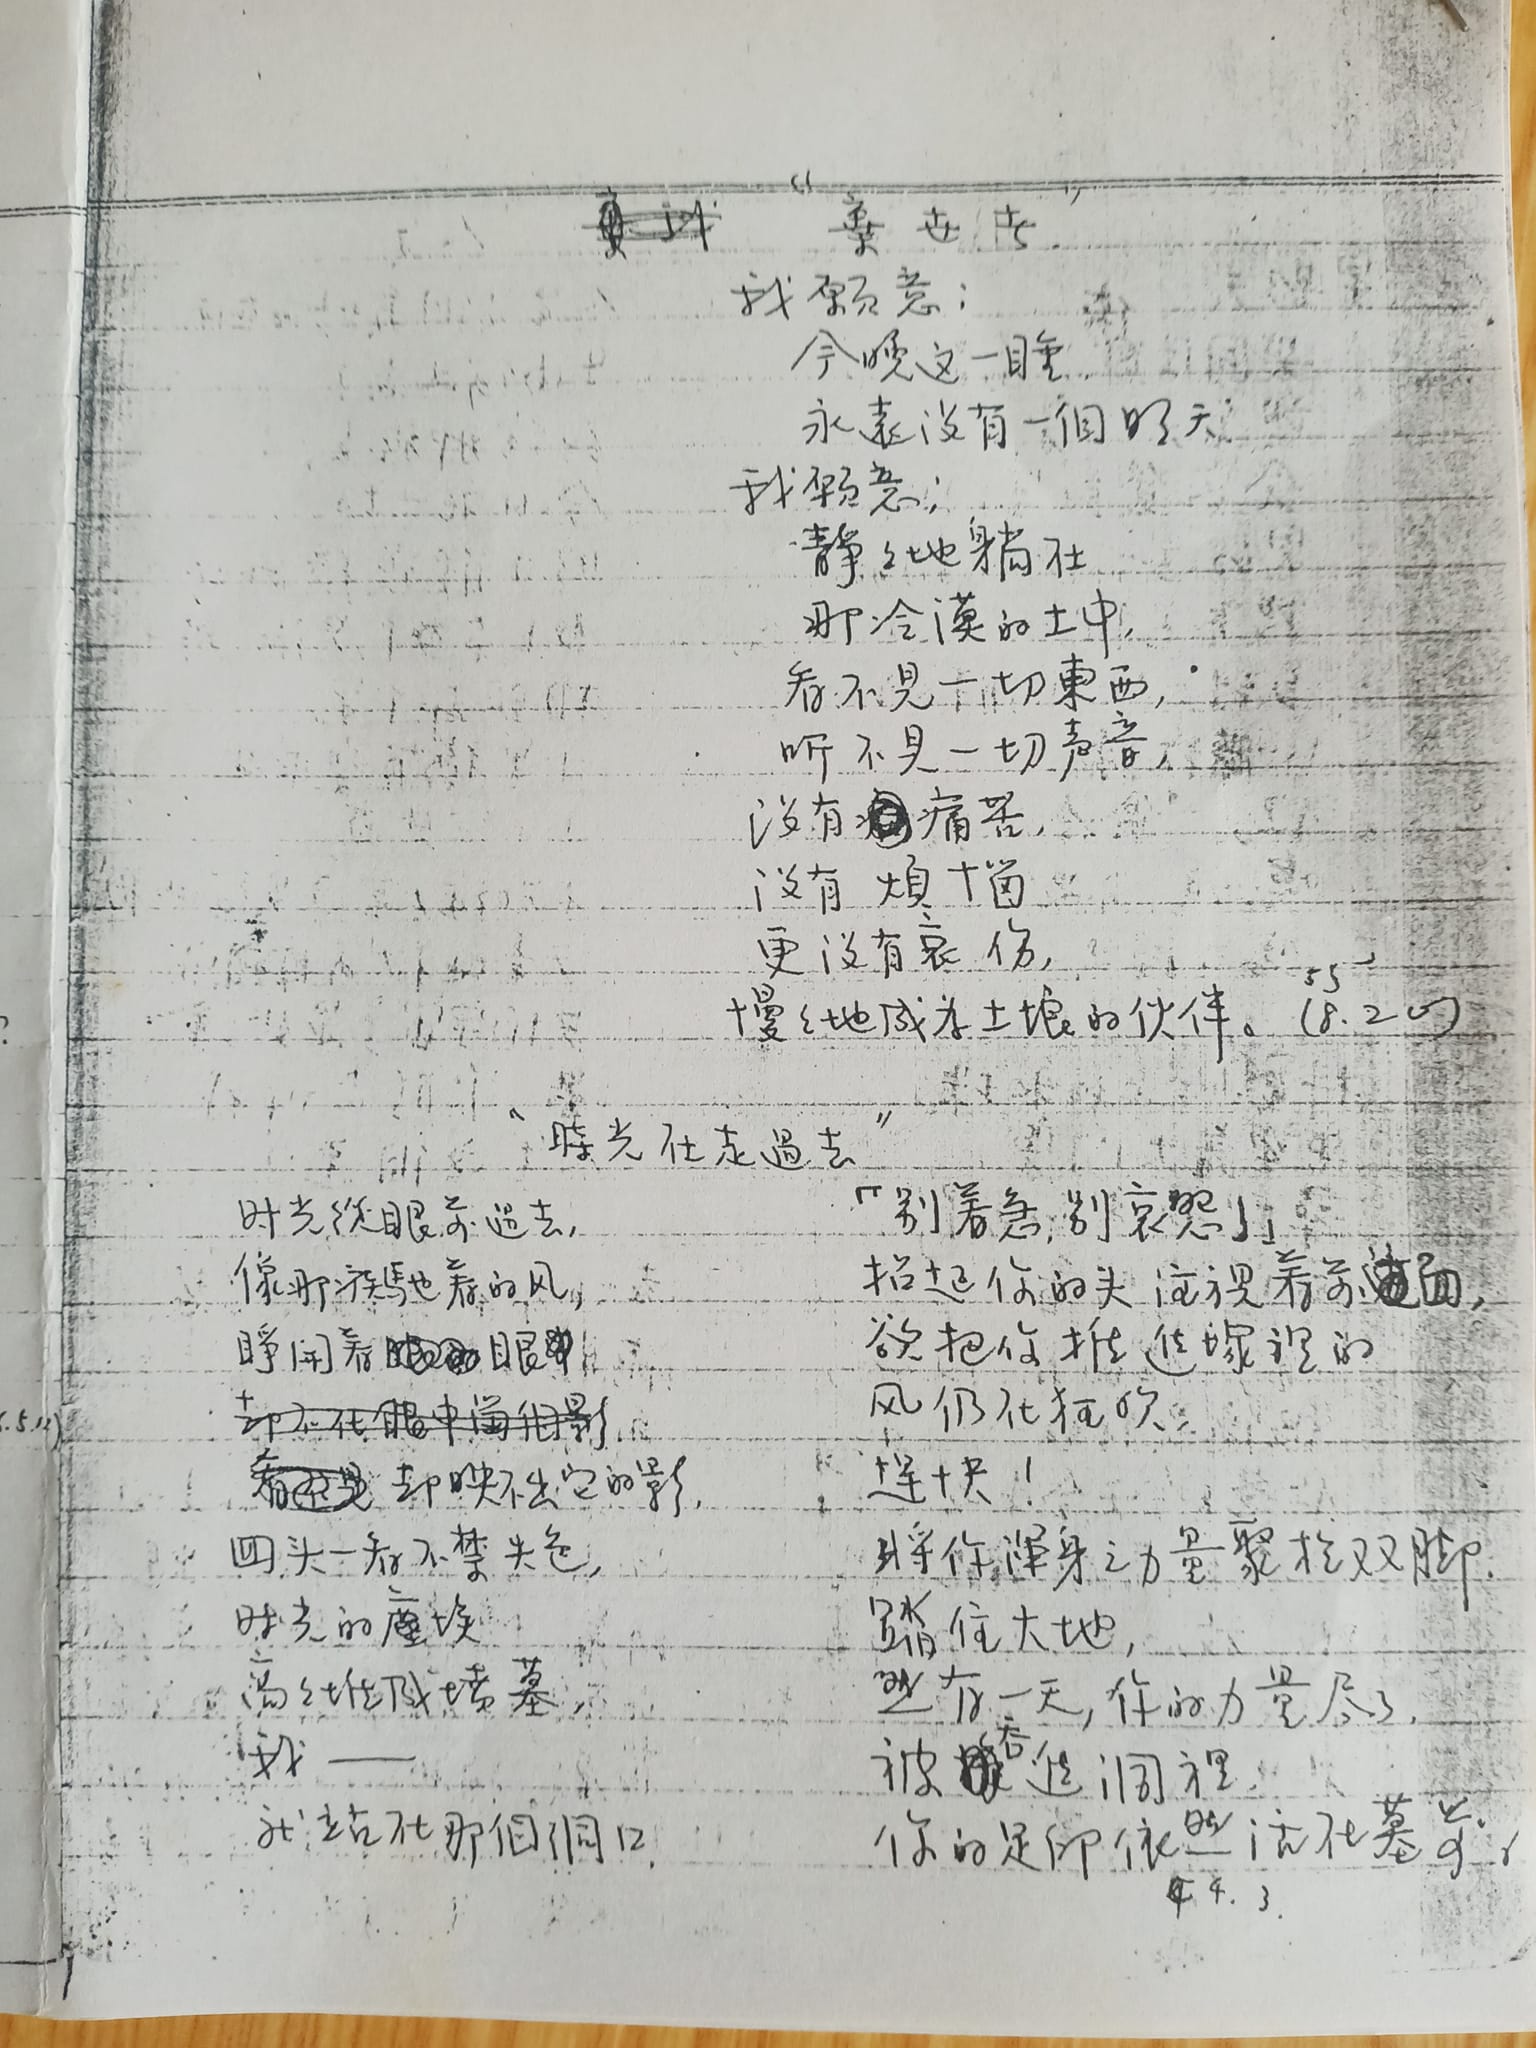 “棄世者”
我願意：
今晚这一睡
永遠没有一個明天
我願意；
靜々地躺在
那冷漠的土中，
看不見一切東西，
听不見一切声音，
没有痛苦，
没有煩惱
更没有哀伤，
慢々地成为土壤的伙伴。
“時光在走過去”
时光從眼前过去，
像那疾馳着的风，
睁開着眼
却不在眼中留個影
看不見 却映不出它的影，
回头一看不禁失色，
时光的塵埃
高々堆成墳墓，
我——
就站在那個洞口
「别着急，别哀怨」」
抬起你的头 注視着前面，
欲把你推進塚裡的
风仍在狂吹，
趕快！
將你渾身之力量聚於双脚，
踏住大地，
然有一天，你的力量尽了，
被吞進洞裡，
你的足印依然活在墓旁。
4.3.